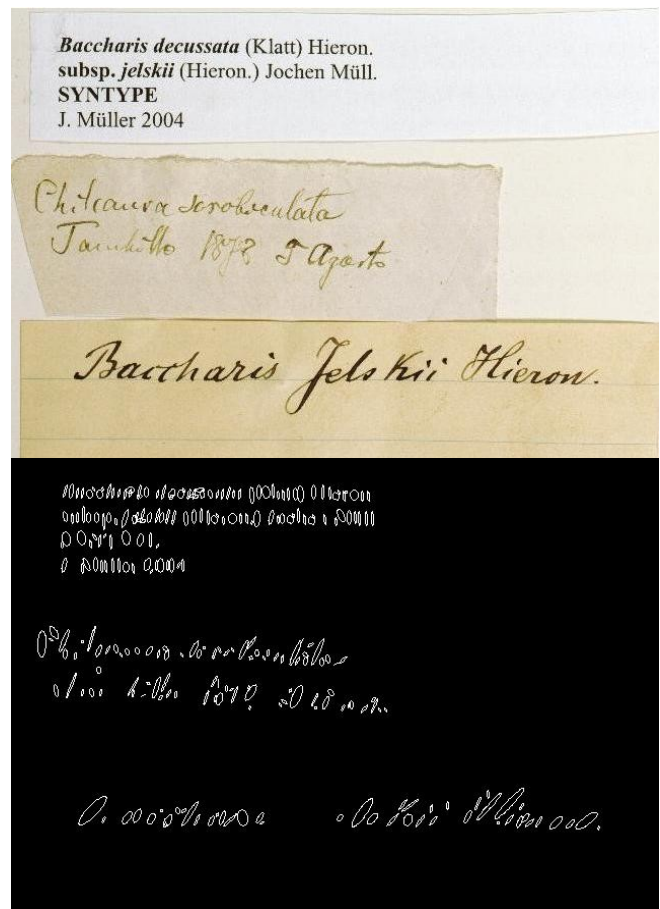 Baccharis decussata (Klatt) Hieron.
subsp. jelskii (Hieron.) Jochen Müll.
SYNTYPE
J. Müller 2004
scrobiculata
1878
Baccharis Jelskii Hieron.